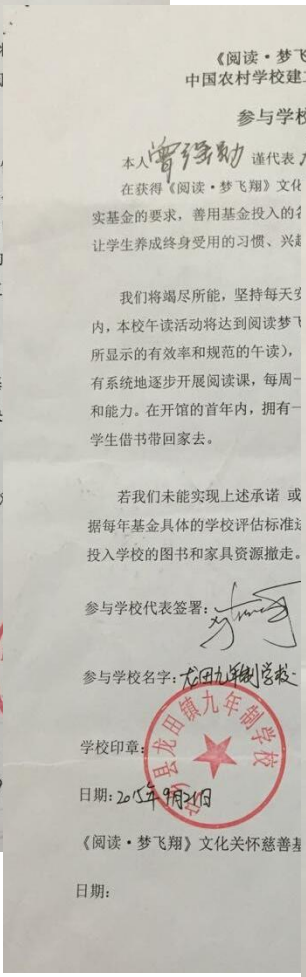 《阅读·梦飞
中国农村学校建
参与学校
本人曾强勋 谨代表
在获得《阅读·梦飞翔》文化
实基金的要求，善用基金投入的
让学生养成终身受用的习惯、兴趣
我们将竭尽所能，坚持每天安
内，本校午读活动将达到阅读梦飞
所显示的有效率和规范的午读），
有系统地逐步开展阅读课，每周一
和能力。在开馆的首年内，拥有一
学生借书带回家去。
若我们未能实现上述承诺 或
据每年基金具体的学校评估标准达
投入学校的图书和家具资源撤走。
参与学校代表签署：
参与学校名字：龙田九年制学校
县龙田镇九年制学校
学校印章：
日期：2015年9月21日
《阅读·梦飞翔》文化关怀慈善基
日期：